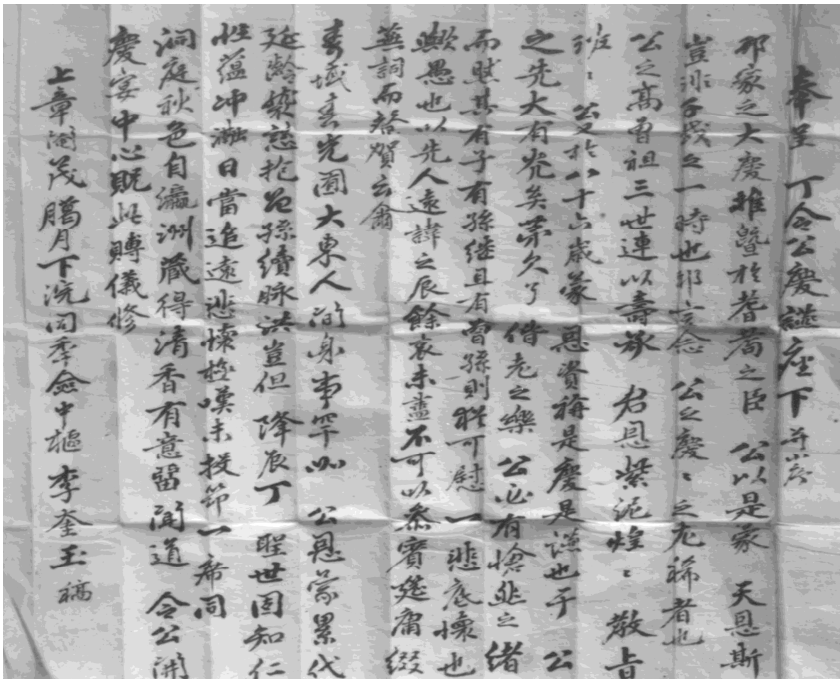 奉呈 丁令公慶讌座下 并小叙
邦家之大慶推暨於耆耈之臣 公以是蒙 天恩斯
豈非千載之一時也耶言念 公之慶〻之尤稀者也
公之高曾祖三世連以壽承 君恩紫泥煌〻教旨
班〻 公又於八十六歲蒙 恩資稱是慶是讌也于 公
之先大有光矣第欠了 偕老之樂 公必有愴之緖
而然其有子有孫继且有曾孫則猶可慰一悲底懷也
歟愚也以先人遠諱之辰餘哀未盡不可以叅賓筵庸綴
蕪詞而替賀云爾
壽域春光圍大東人間身事罕如 公恩蒙累代
延齡籙慈抱曾孫續脉洪豈但 降辰丁 聖世固知仁
性蘊冲瀜日當追遠悲懷極嘆未投筇一席同
洞庭秋色自瀛洲藏得淸香有意留聞道 令公開
慶宴中心貺此賻儀修
上章閹茂臘月下浣同季僉中樞 李奎玉 稿